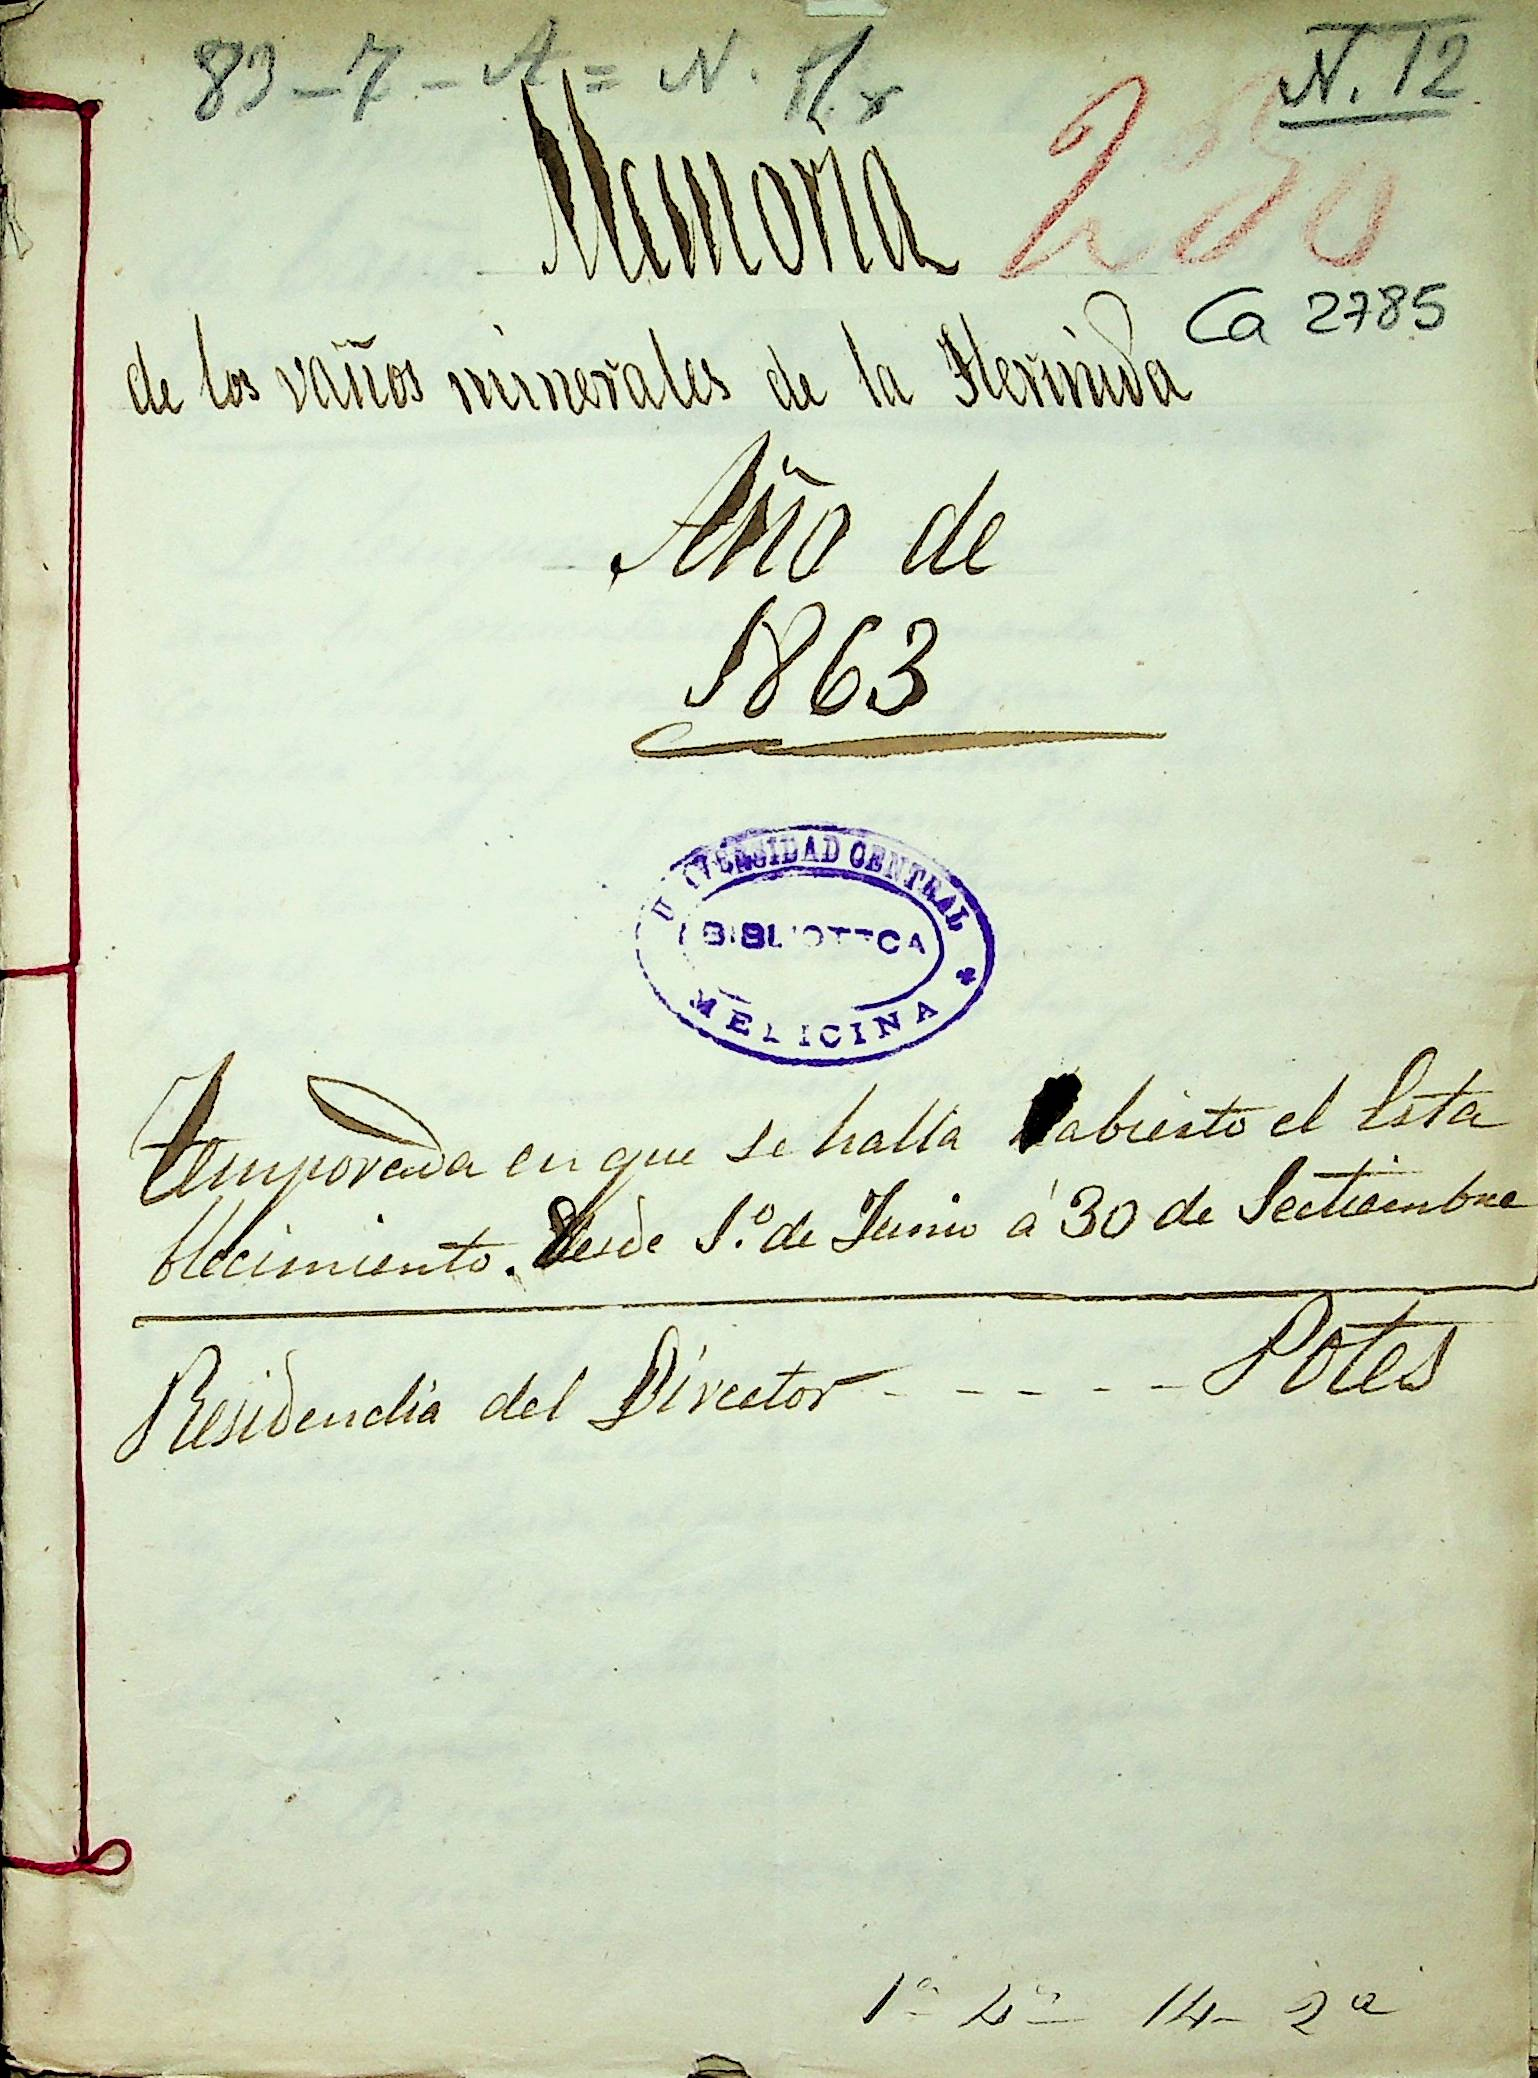 83-7-A = N.
N. 12
Memoria
250
Ca 2785
de los vaños minerales de la Hermida
Año de
1863
UNIVERSIDAD CENTRAL
BIBLIOTECA
MEDICINA
Temporada en que se halla abierto el Esta
blecimiento. Desde 1.º de Junio á 30 de Sectiembre
Residencia del Director - - - - - Potes
1ª 4ª 14 - 2ª